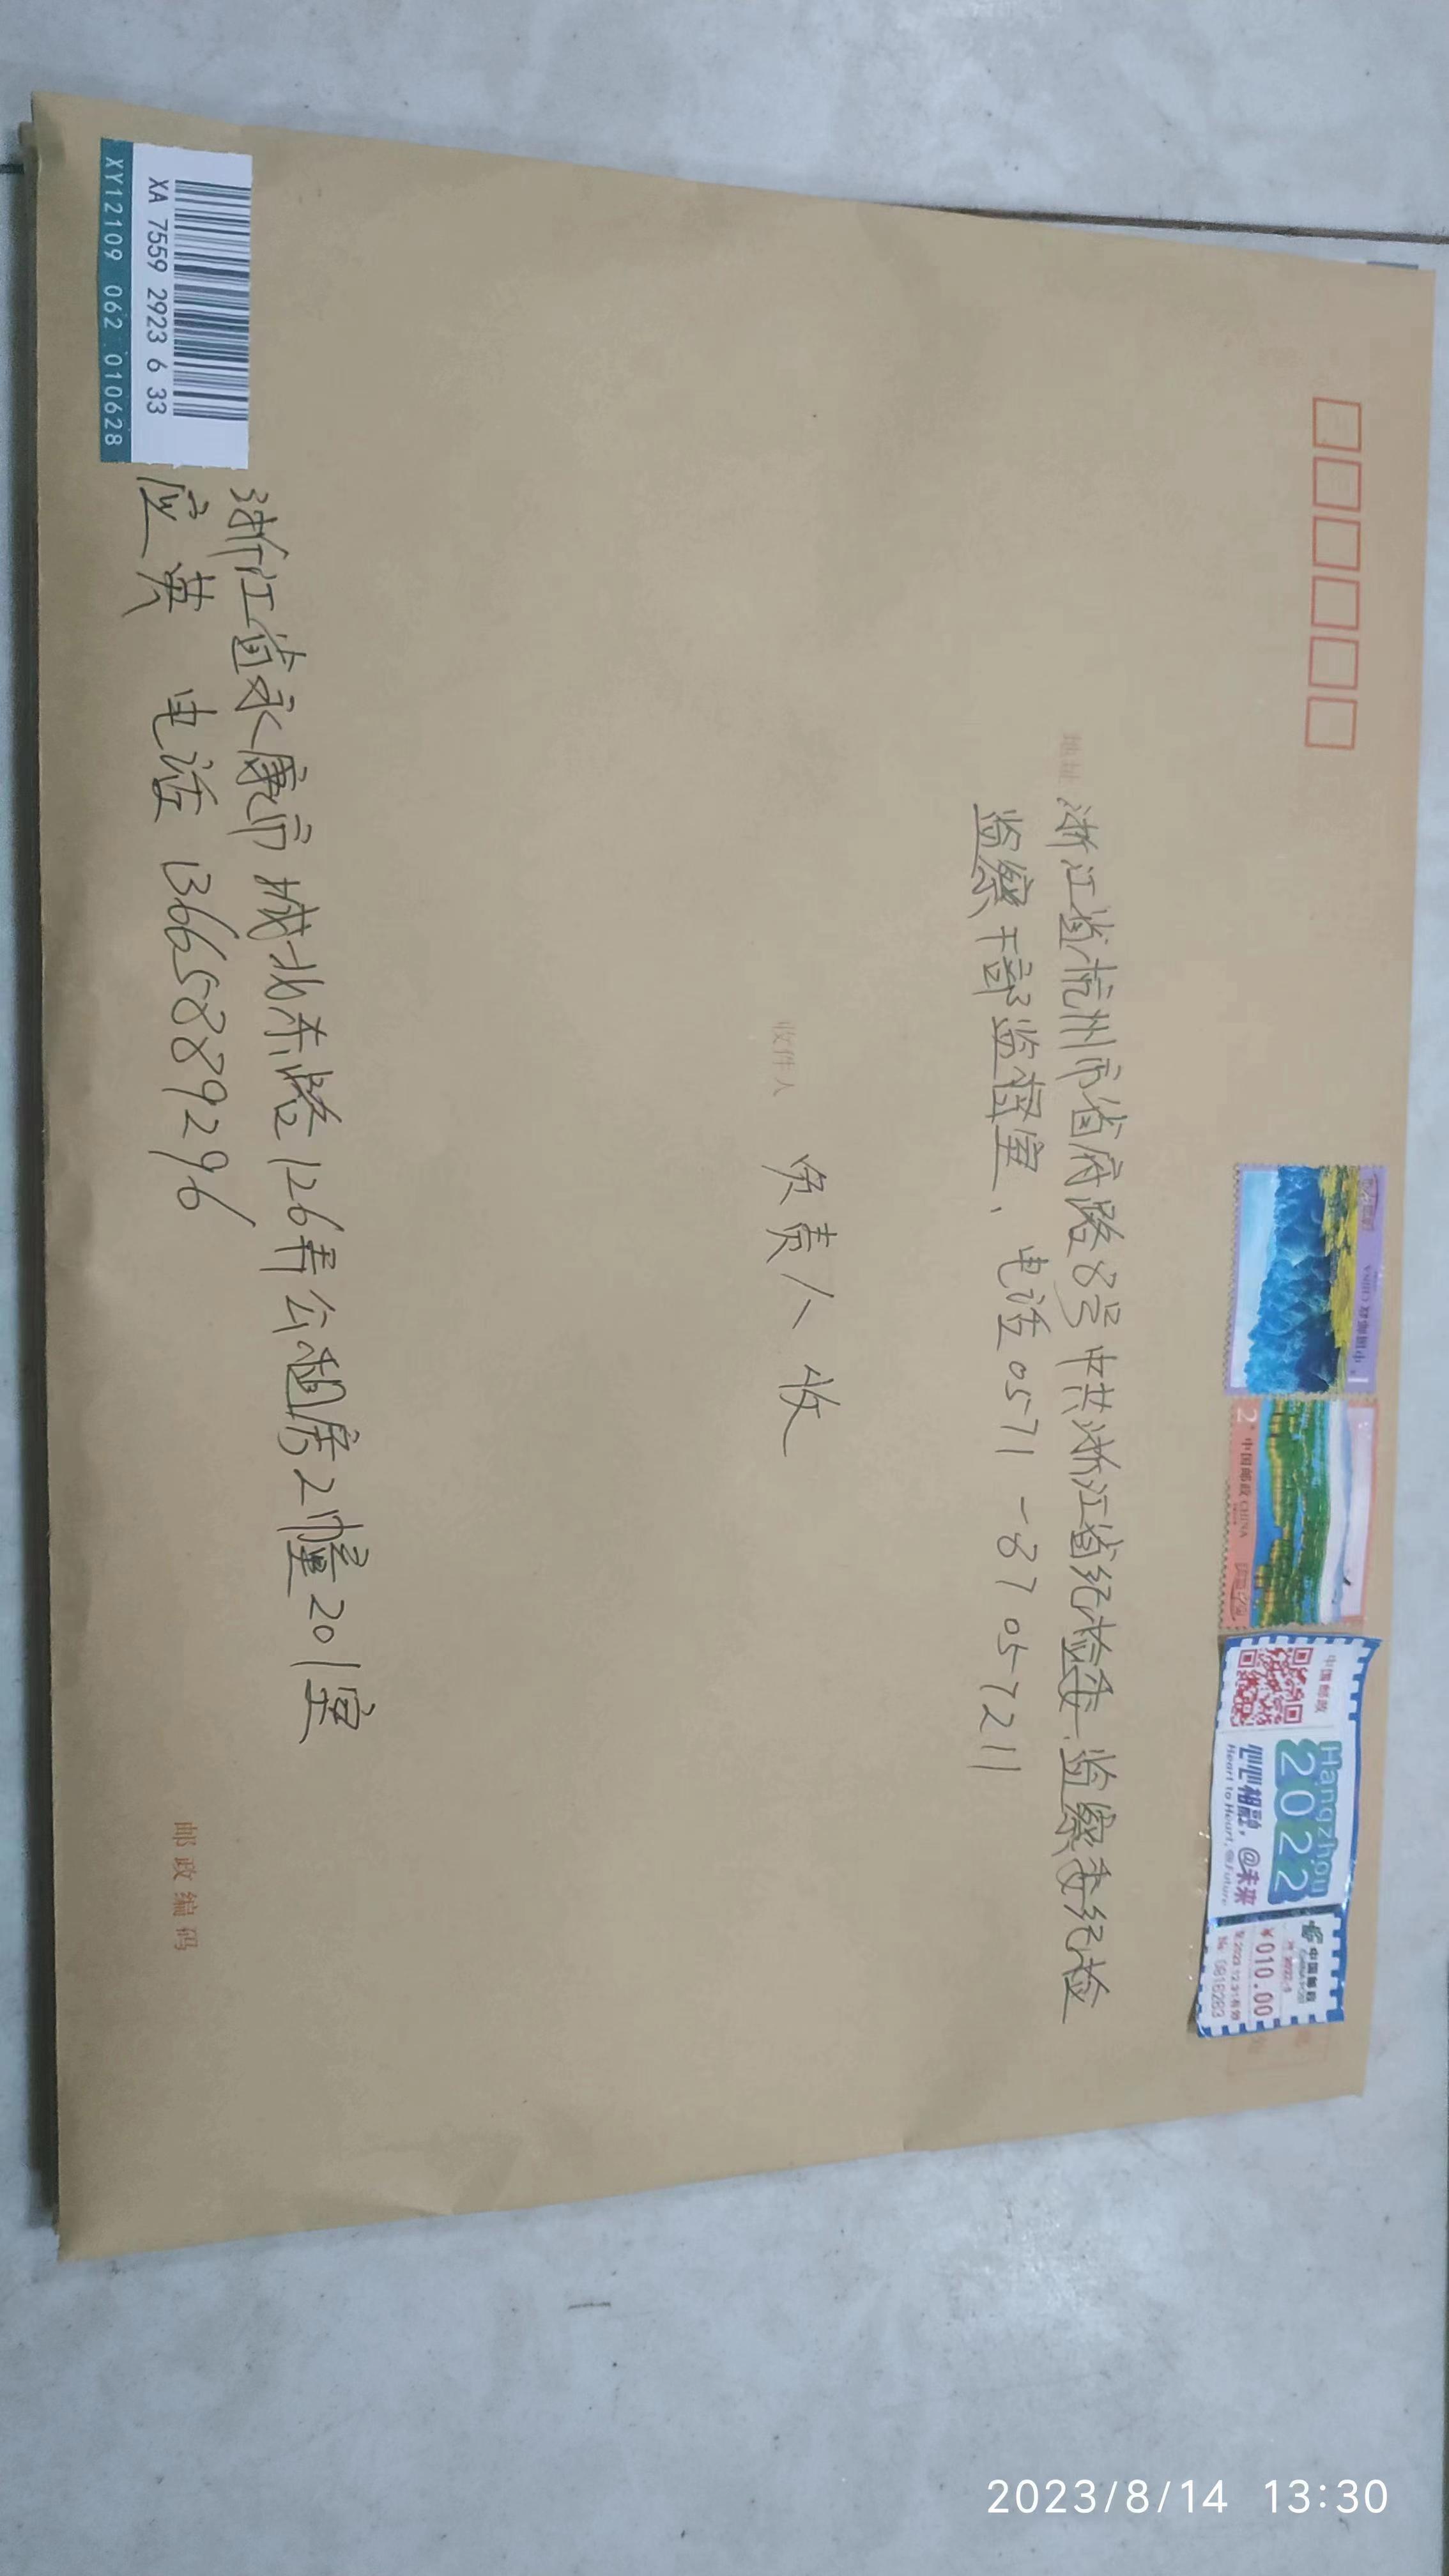 中国邮政 CHINA
1
2
中国邮政 CHINA
中国邮政
Hangzhou
2022
心心相融,@未来
Heart to Heart, @Future
中国邮政
¥010.00
地址 浙江省杭州市省府路8号中共浙江省纪检委.监察委纪检
监察干部监督室、电话0571-87057211
收件人 负责人收
浙江省永康市城北东路126弄公租房2幢201室
应英 电话13665889296
XA 7559 2923 6 33
XY12109 062 010628
邮政编码
2023/8/14 13:30